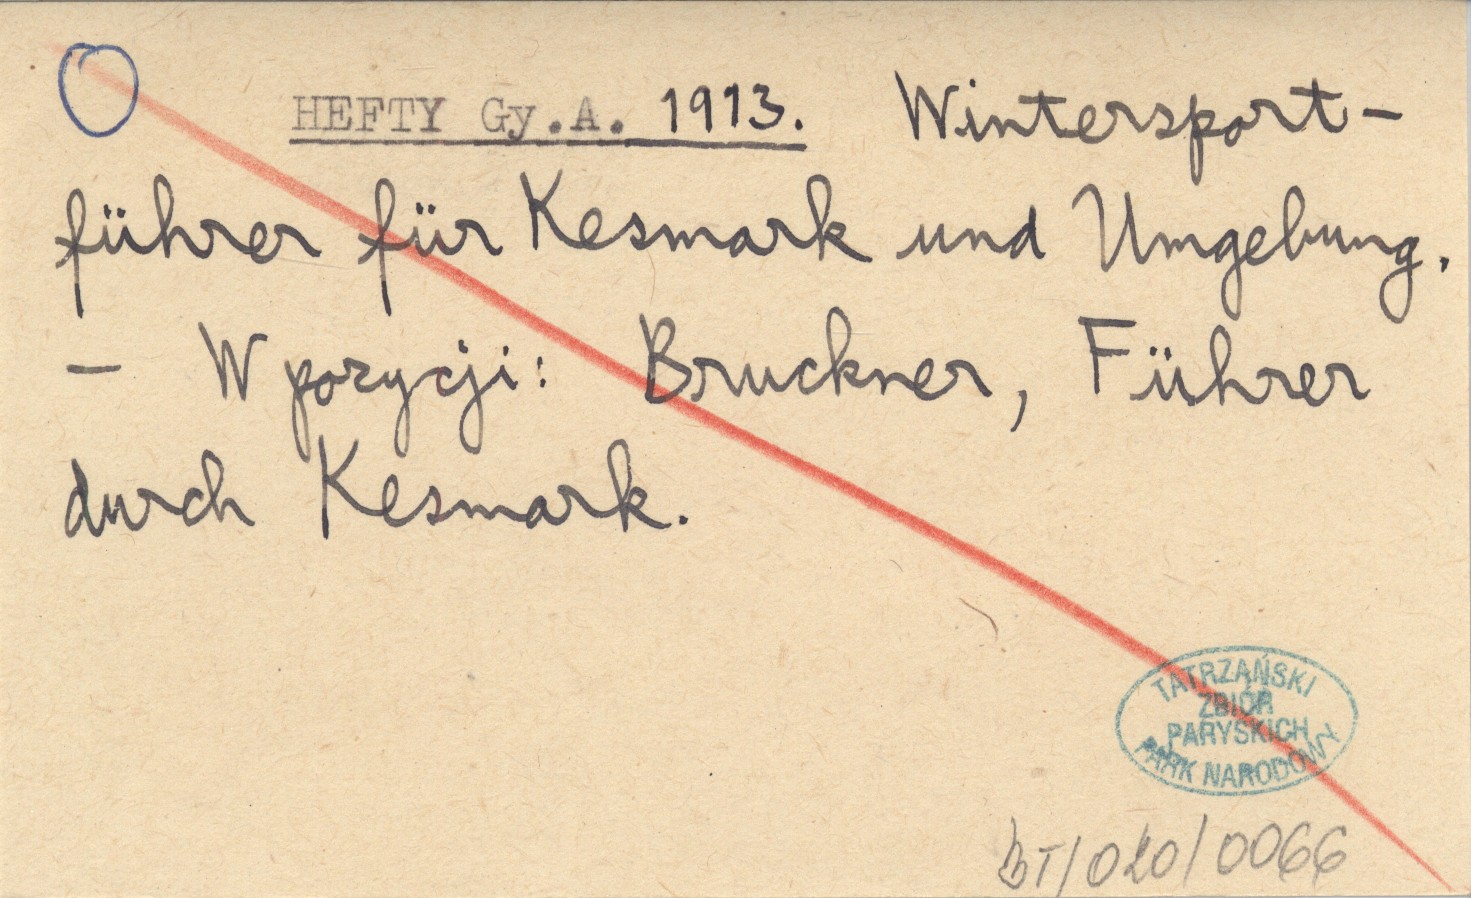 HEFTY Gy.A. 1913. Wintersport-
führer für Kesmark und Umgebung.
- W pozycji: Bruckner, Führer
durch Kesmark.
TATRZAŃSKI
ZBIÓR
PARYSKICH
PARK NARODOWY
BT/020/0066